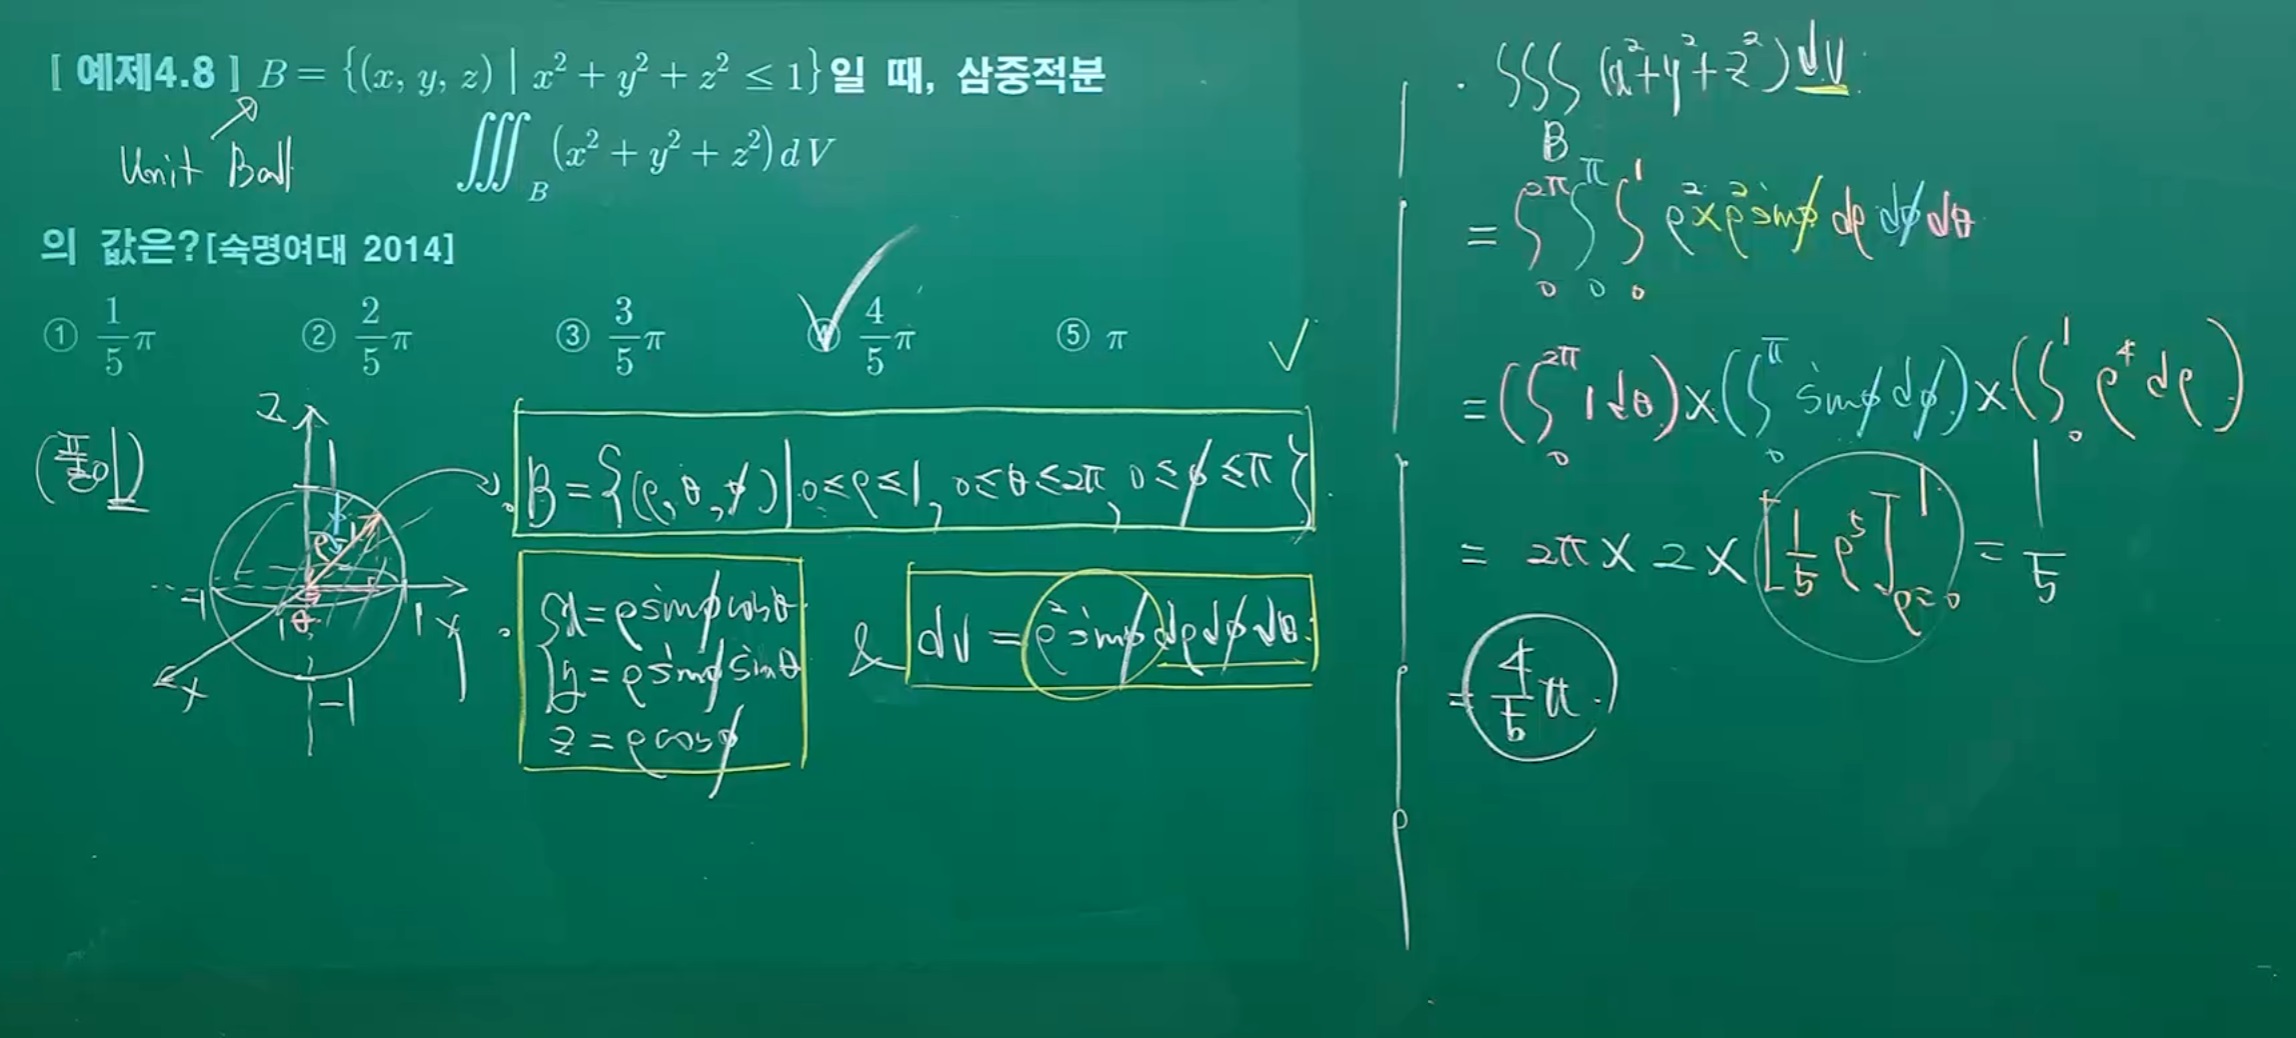 [ 예제4.8 ] B = {(x, y, z) | x² + y² + z² ≤ 1}일 때, 삼중적분
Unit Ball
∭_B (x² + y² + z²) dV
의 값은? [숙명여대 2014]
① 1/5 π ② 2/5 π ③ 3/5 π ④ 4/5 π ⑤ π
(풀이)
z
1
-1
1 y
x
-1
ρ
θ
1
B = {(ρ, θ, φ) | 0 ≤ ρ ≤ 1, 0 ≤ θ ≤ 2π, 0 ≤ φ ≤ π}
x = ρ sinφ cosθ
y = ρ sinφ sinθ
z = ρ cosφ
& dV = ρ² sinφ dρ dφ dθ
· ∭_B (x² + y² + z²) dV
= ∫₀^2π ∫₀^π ∫₀^1 ρ² × ρ² sinφ dρ dφ dθ
= (∫₀^2π 1 dθ) × (∫₀^π sinφ dφ) × (∫₀^1 ρ⁴ dρ)
= 2π × 2 × [1/5 ρ⁵]_{ρ=0}^1 = 1/5
= 4/5 π.